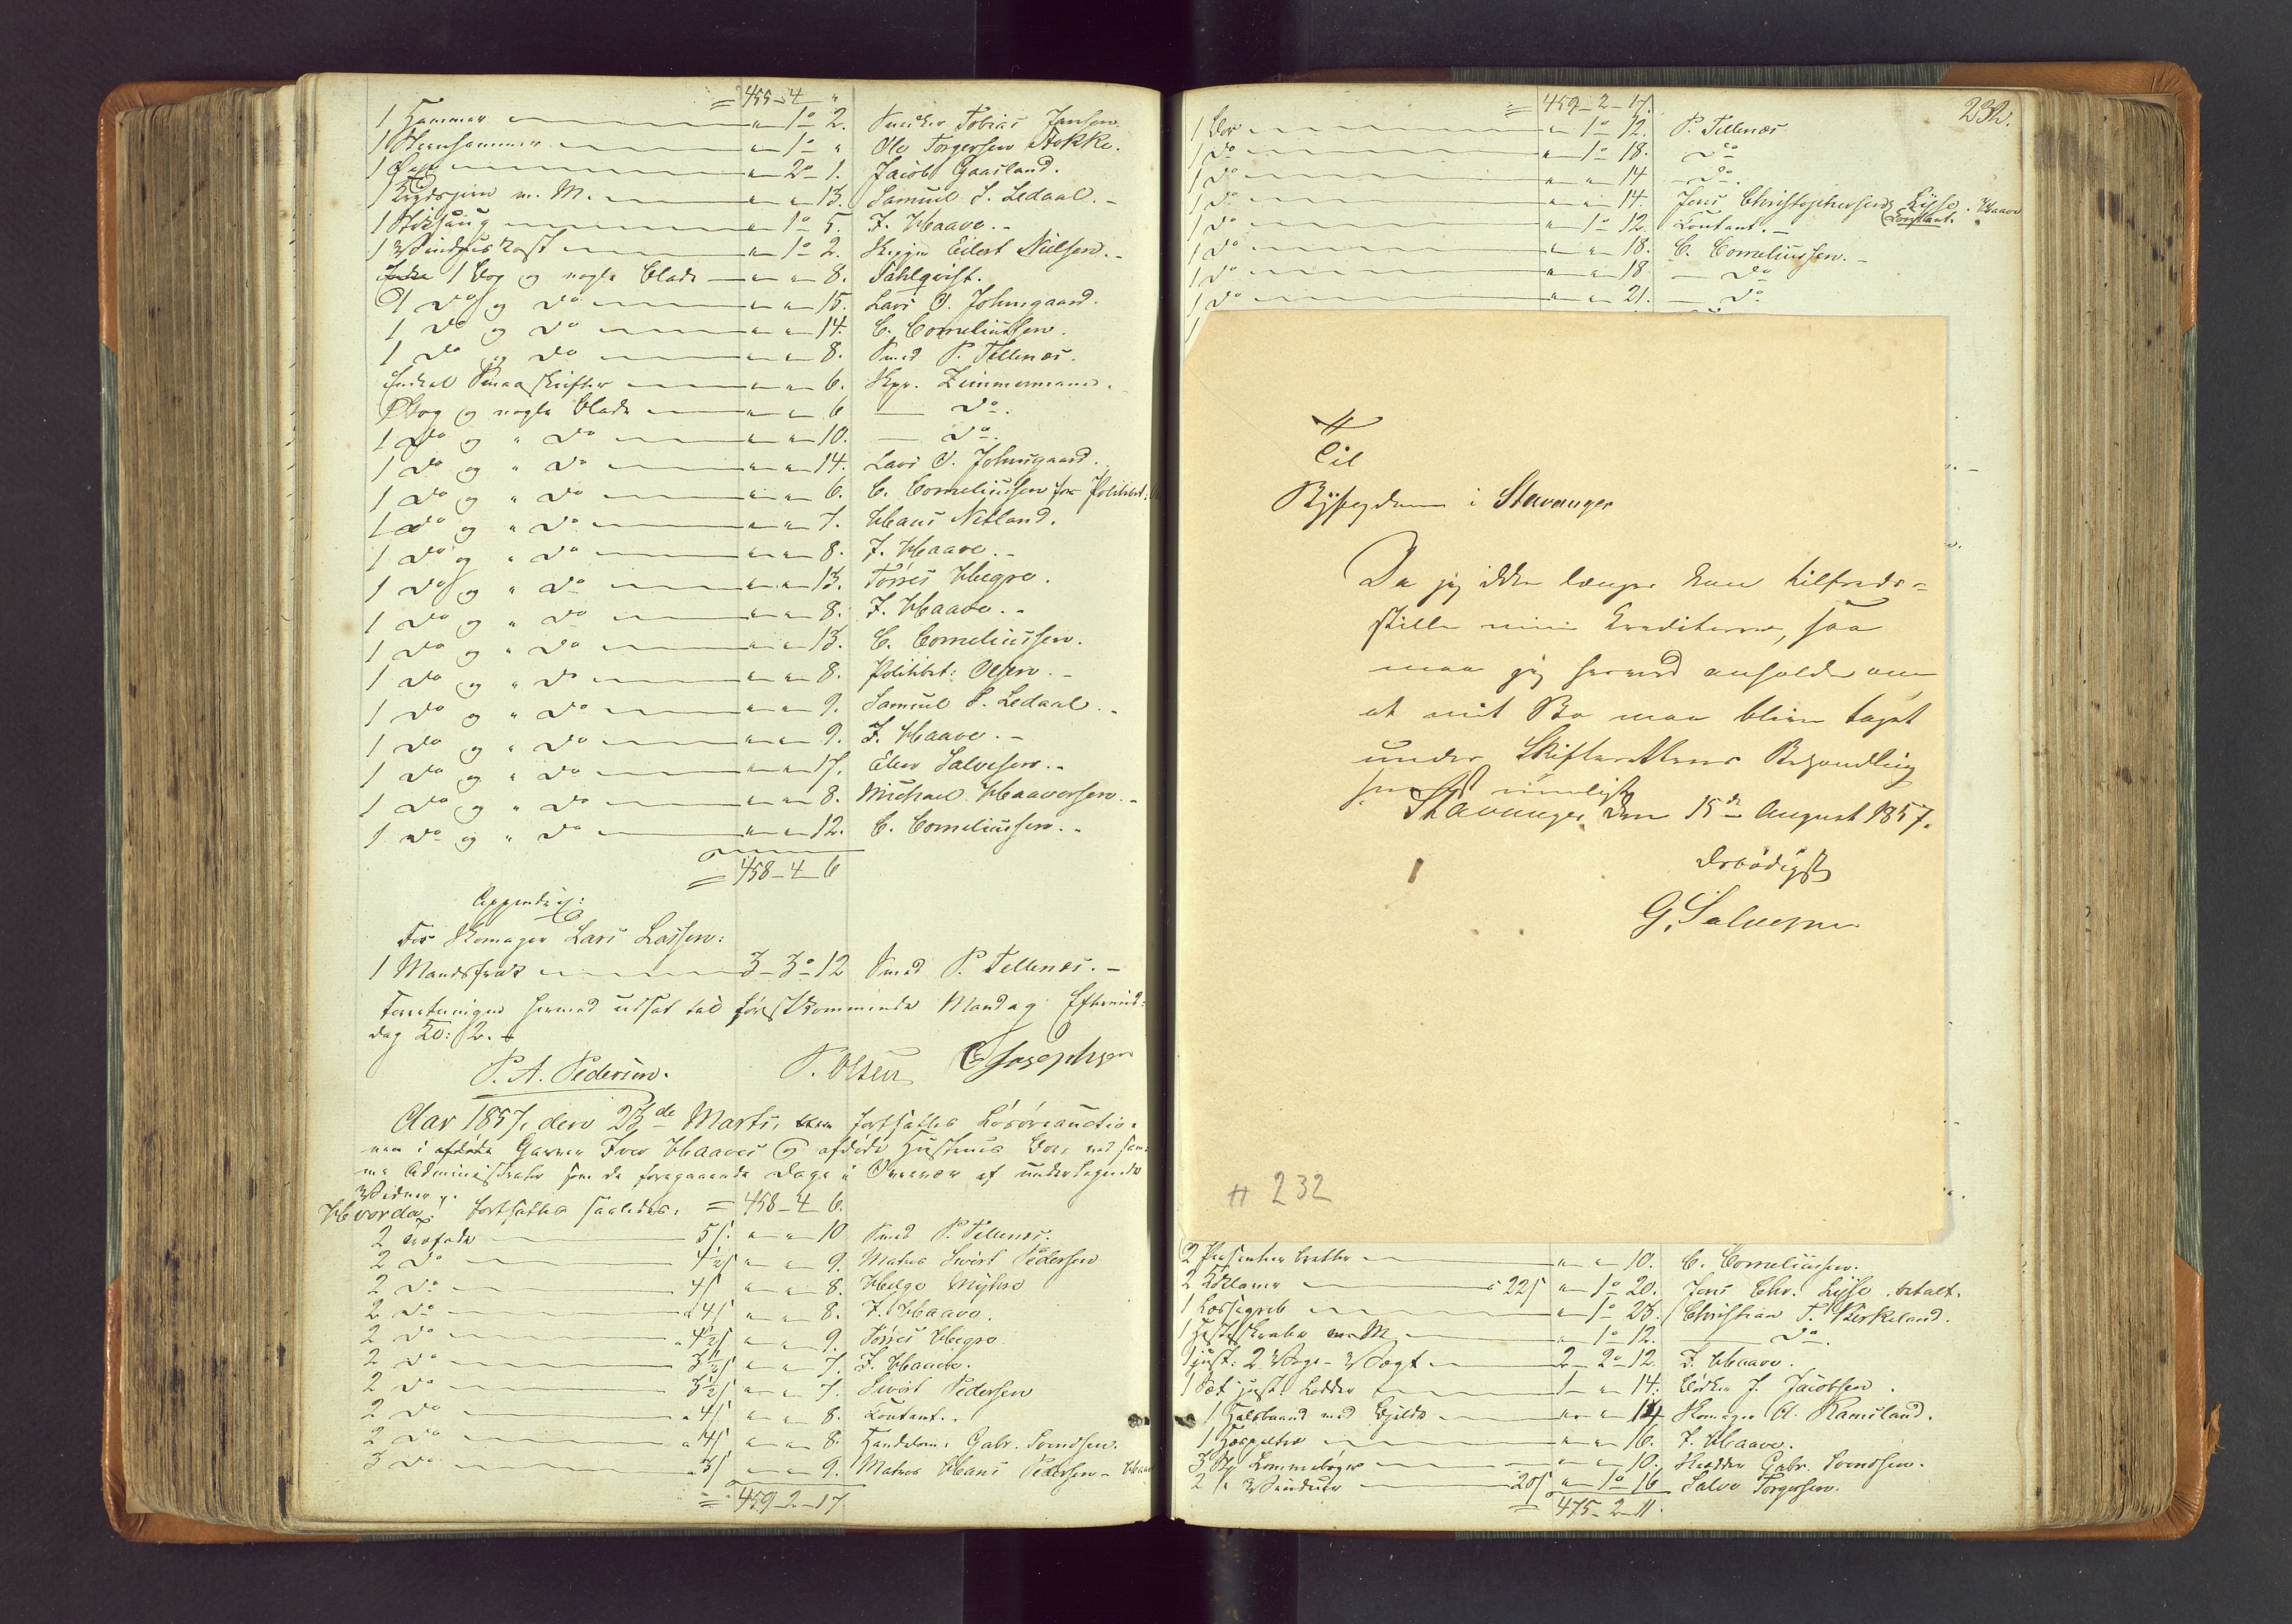 = 455-4-"
1 Hammer " 1° 2. Snedker Tobias Jansen.
1 Steenhammer " 1° " Ole Torgersen Stokke.
1 " 2° 1. Jacob Gaasland.
m. M. " " 13. Samuel S. Ledaal.-
1 " 1° 5. J. Haave.-
1 " 1° 2. Eilert Nielsen.-
1 Bog og nogle Blade " " 8. Sahlqvist.
1 Do og Do " " 15. Lars O. Johnsgaard.
1 Do og Do " " 14. C. Corneliussen.
1 Do og Do " " 8. Smed P. Tellenæs.
Endeel Smaaskrifter " " 6. Skpr. Zimmermann.
1 Bog og nogle Blade " " 6 — Do.
1 Do og " Do " " 10. — Do.
1 Do og " Do " " 14. Lars O. Johnsgaard.
1 Do og " Do " " 6. C. Corneliussen for Politibt:
1 Do og " Do " " 7. Hans Netland.
1 Do og " Do " " 8. J. Haave.-
1 Do og " Do " " 13. Törres Hegre.
1 Do og " Do " " 8. J. Haave.-
1 Do og " Do " " 13. C. Corneliussen.
1 Do og " Do " " 8. Politibt: Olsen.-
1 Do og " Do " " 9. Samuel S. Ledaal.-
1 Do og " Do " " 9. J. Haave.-
1 Do og " Do " " 17. Salvesen.-
1 Do og " Do " " 8. Michael Haaversen.-
1 Do og " Do " " 12. C. Corneliussen.-
= 458-4-6
Appendix:
For Skomager Lars Lassen:
1 Mandsfrak 3-3°-12 Smed P. Tellenæs.-
Forretningen hermed udsat til förstkommende Mandag Eftermid-
dag Kl: 2.-
P. A. Pedersen. P. Olsen Josephsen
Aar 1857, den 23de Marts, fortsattes Lösöreauctio-
nen i Garver Iver Haaves & afdöde Hustrues Boe, ved sam-
me Administrator som de foregaaende Dage i Overvær af undertegnede
Vidner.
Hvorda: fortsattes saaledes: = 458-4-6.
2 5/. " " 10 Smed P. Tellenæs.
2 Do 4½/ " " 9. Matros Sivert Pedersen
2 Do 4/ " " 8. Helge Myhre
2 Do a 4/ " " 8. J. Haave.
2 Do a 4½/ " " 9. Törres Hegre
2 Do 3½/ " " 7. J. Haave.
2 Do 3½/ " " 7. Sivert Pedersen
2 Do a 4/ " " 8. Contant.-
2 Do a 4/ " " 8. Handelsm: Gabr. Svendsen.
3 Do a 3/ " " 9. Matros Hans Pedersen - Haave
= 459-2-17
232.
= 459-2-17.
1 " 1° 12. P. Tellenæs
1 Do " 1° 18. Do
1 Do " " 14 — Do.
1 Do " " 14. Jens Christophersen Lyse. Haave
Contant.
1 Do " 1° 12. Contant.-
1 Do " " 18. C. Corneliussen.-
1 Do " " 18. — Do
1 Do " " 21. — Do
Til
Byfogden i Stavanger
Da jeg ikke længer kan tilfreds-
stille mine Creditorer, saa
maa jeg herved anholde om
at mit Bo maa blive taget
under Skifterettens Behandling
snarest muligt
Stavanger den 15de August 1857.
Ærbödigst
G. Salvesen
# 232
2 Presenteer Bretter " " 10. C. Corneliussen.
2 a 22/ " 1° 20. Jens Chr. Lyse. betalt.
1 " 1° 23. Christian T. Birkeland.
1 Hesteskrabe m M " 1° 12. — Do.
1 just: 2 Vægt 2- 2° 12. J. Haave.
1 Sæt just: Lodder 1- " 14. Bödker J. Jacobsen.
1 Halsbaand med Bjelde " " 14 Skomager A. Ramsland.
1 " " 16. J. Haave.
3 Lommeböger " " 10. Gabr. Svendsen.
2 Vinduer a 20/ " 1° 16 Salve Torgersen.
= 475-2-11.